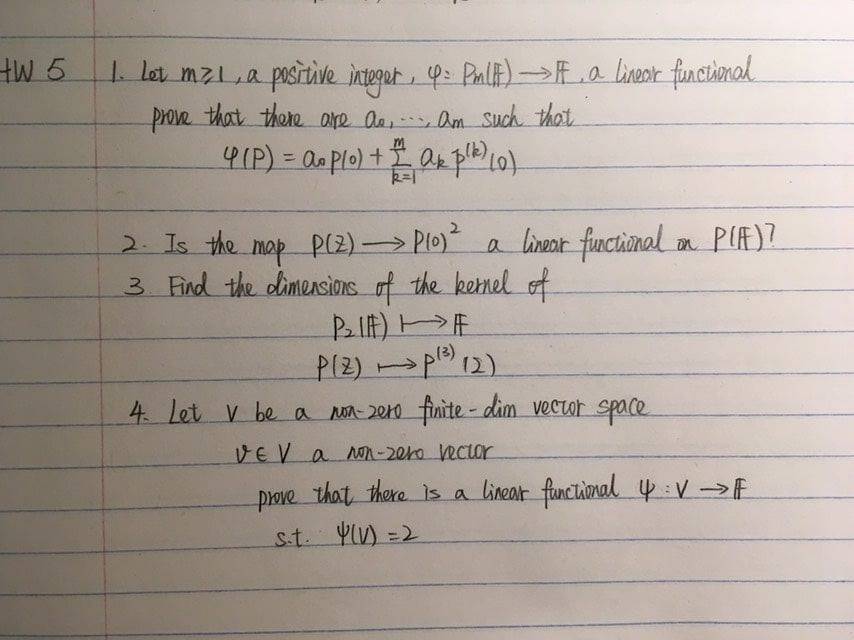 HW 5 1. Let m ≥ 1, a positive integer, φ: Pm(𝔽) → 𝔽, a linear functional
prove that there are a₀, ..., am such that
φ(P) = a₀ p(0) + Σ_{k=1}^{m} a_k p^{(k)}(0)
2. Is the map P(Z) → P(0)² a linear functional on P(𝔽)?
3 Find the dimensions of the kernel of
P₂(𝔽) ↦ 𝔽
P(Z) ↦ P^{(3)}(2)
4. Let V be a non-zero finite-dim vector space
v ∈ V a non-zero vector
prove that there is a linear functional ψ: V → 𝔽
s.t. ψ(V) = 2